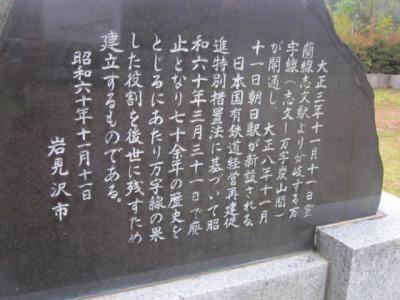 大正三年十一月十一日室
蘭線志文駅より分岐する万
字線(志文ー万字炭山間)
が開通し、大正八年十一月
十一日朝日駅が新設される。
日本国有鉄道経営再建促
進特別措置法に基づいて昭
和六十年三月三十一日で廃
止となり七十余年の歴史を
とじるにあたり万字線の果
した役割を後世に残すため
建立するものである。
昭和六十年十一月十一日
岩見沢市